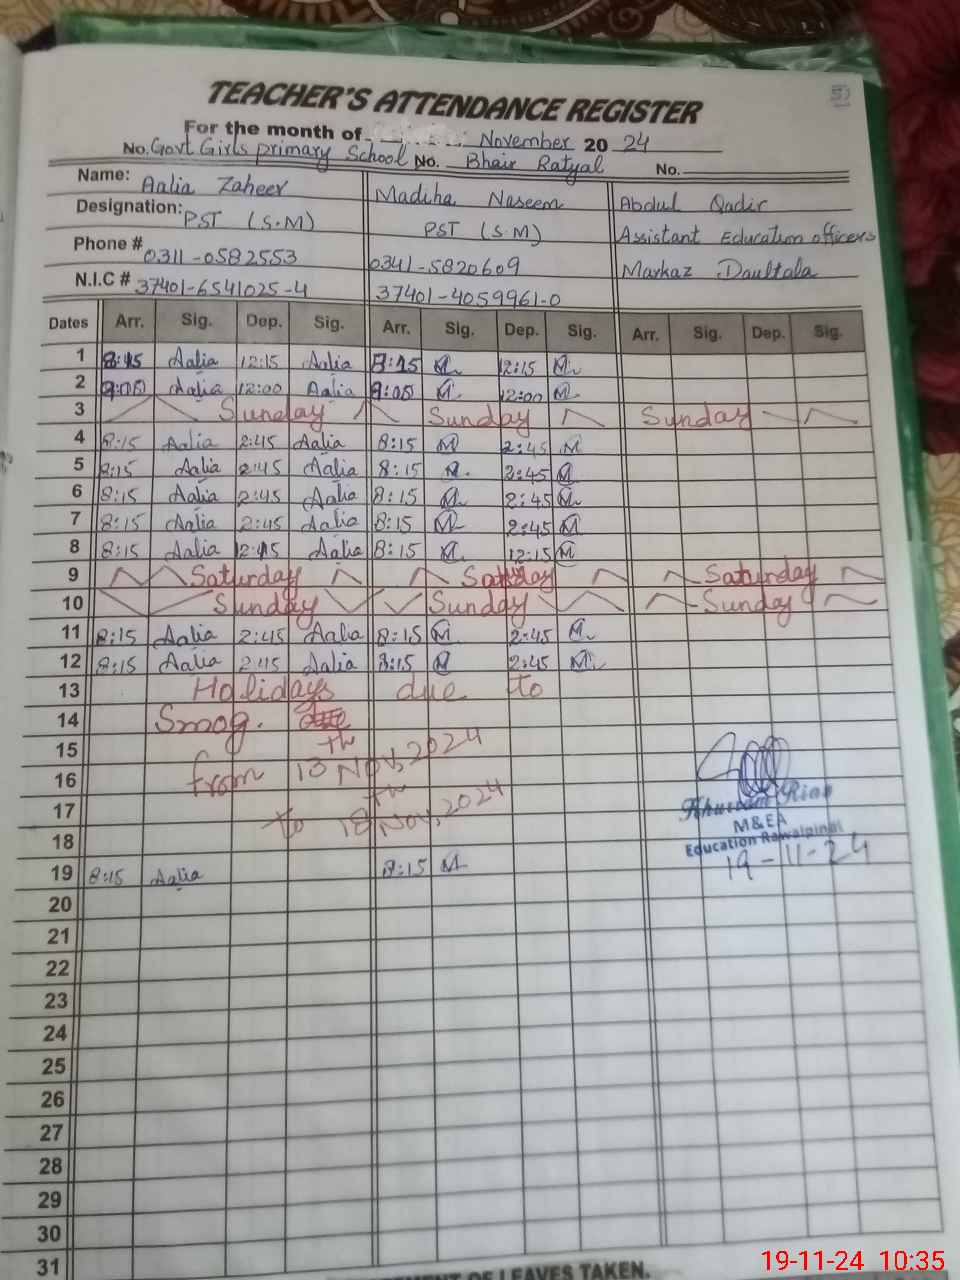 TEACHER'S ATTENDANCE REGISTER
For the month of November 20 24
No. Govt Girls primary School No. Bhair Ratyal No.
Name: Aalia Zaheer Madiha Naseem Abdul Qadir
Designation: PST (S.M) PST (S.M) Assistant Education officers
Phone # 0311-0582553 0341-5820609 Markaz Daultala
N.I.C # 37401-6541025-4 37401-4059961-0
Dates Arr. Sig. Dep. Sig. Arr. Sig. Dep. Sig. Arr. Sig. Dep. Sig.
1 8:15 Aalia 12:15 Aalia 8:15 M 12:15 M
2 9:05 Aalia 12:00 Aalia 9:05 M 12:00 M
3 Sunday Sunday Sunday
4 8:15 Aalia 2:45 Aalia 8:15 M 2:45 M
5 8:15 Aalia 2:45 Aalia 8:15 M 2:45 M
6 8:15 Aalia 2:45 Aalia 8:15 M 2:45 M
7 8:15 Aalia 2:45 Aalia 8:15 M 2:45 M
8 8:15 Aalia 12:15 Aalia 8:15 M 12:15 M
9 Saturday Saturday Saturday
10 Sunday Sunday Sunday
11 8:15 Aalia 2:45 Aalia 8:15 M 2:45 M
12 8:15 Aalia 2:45 Aalia 8:15 M 2:45 M
13 Holidays due to
14 Smog.
15 from 13th Nov, 2024
16
17 to 18th Nov, 2024
18
Khurram Riaz
M&EA
Education Rawalpindi
19-11-24
19 8:15 Aalia 8:15 M
20
21
22
23
24
25
26
27
28
29
30
31
OF LEAVES TAKEN.
19-11-24 10:35